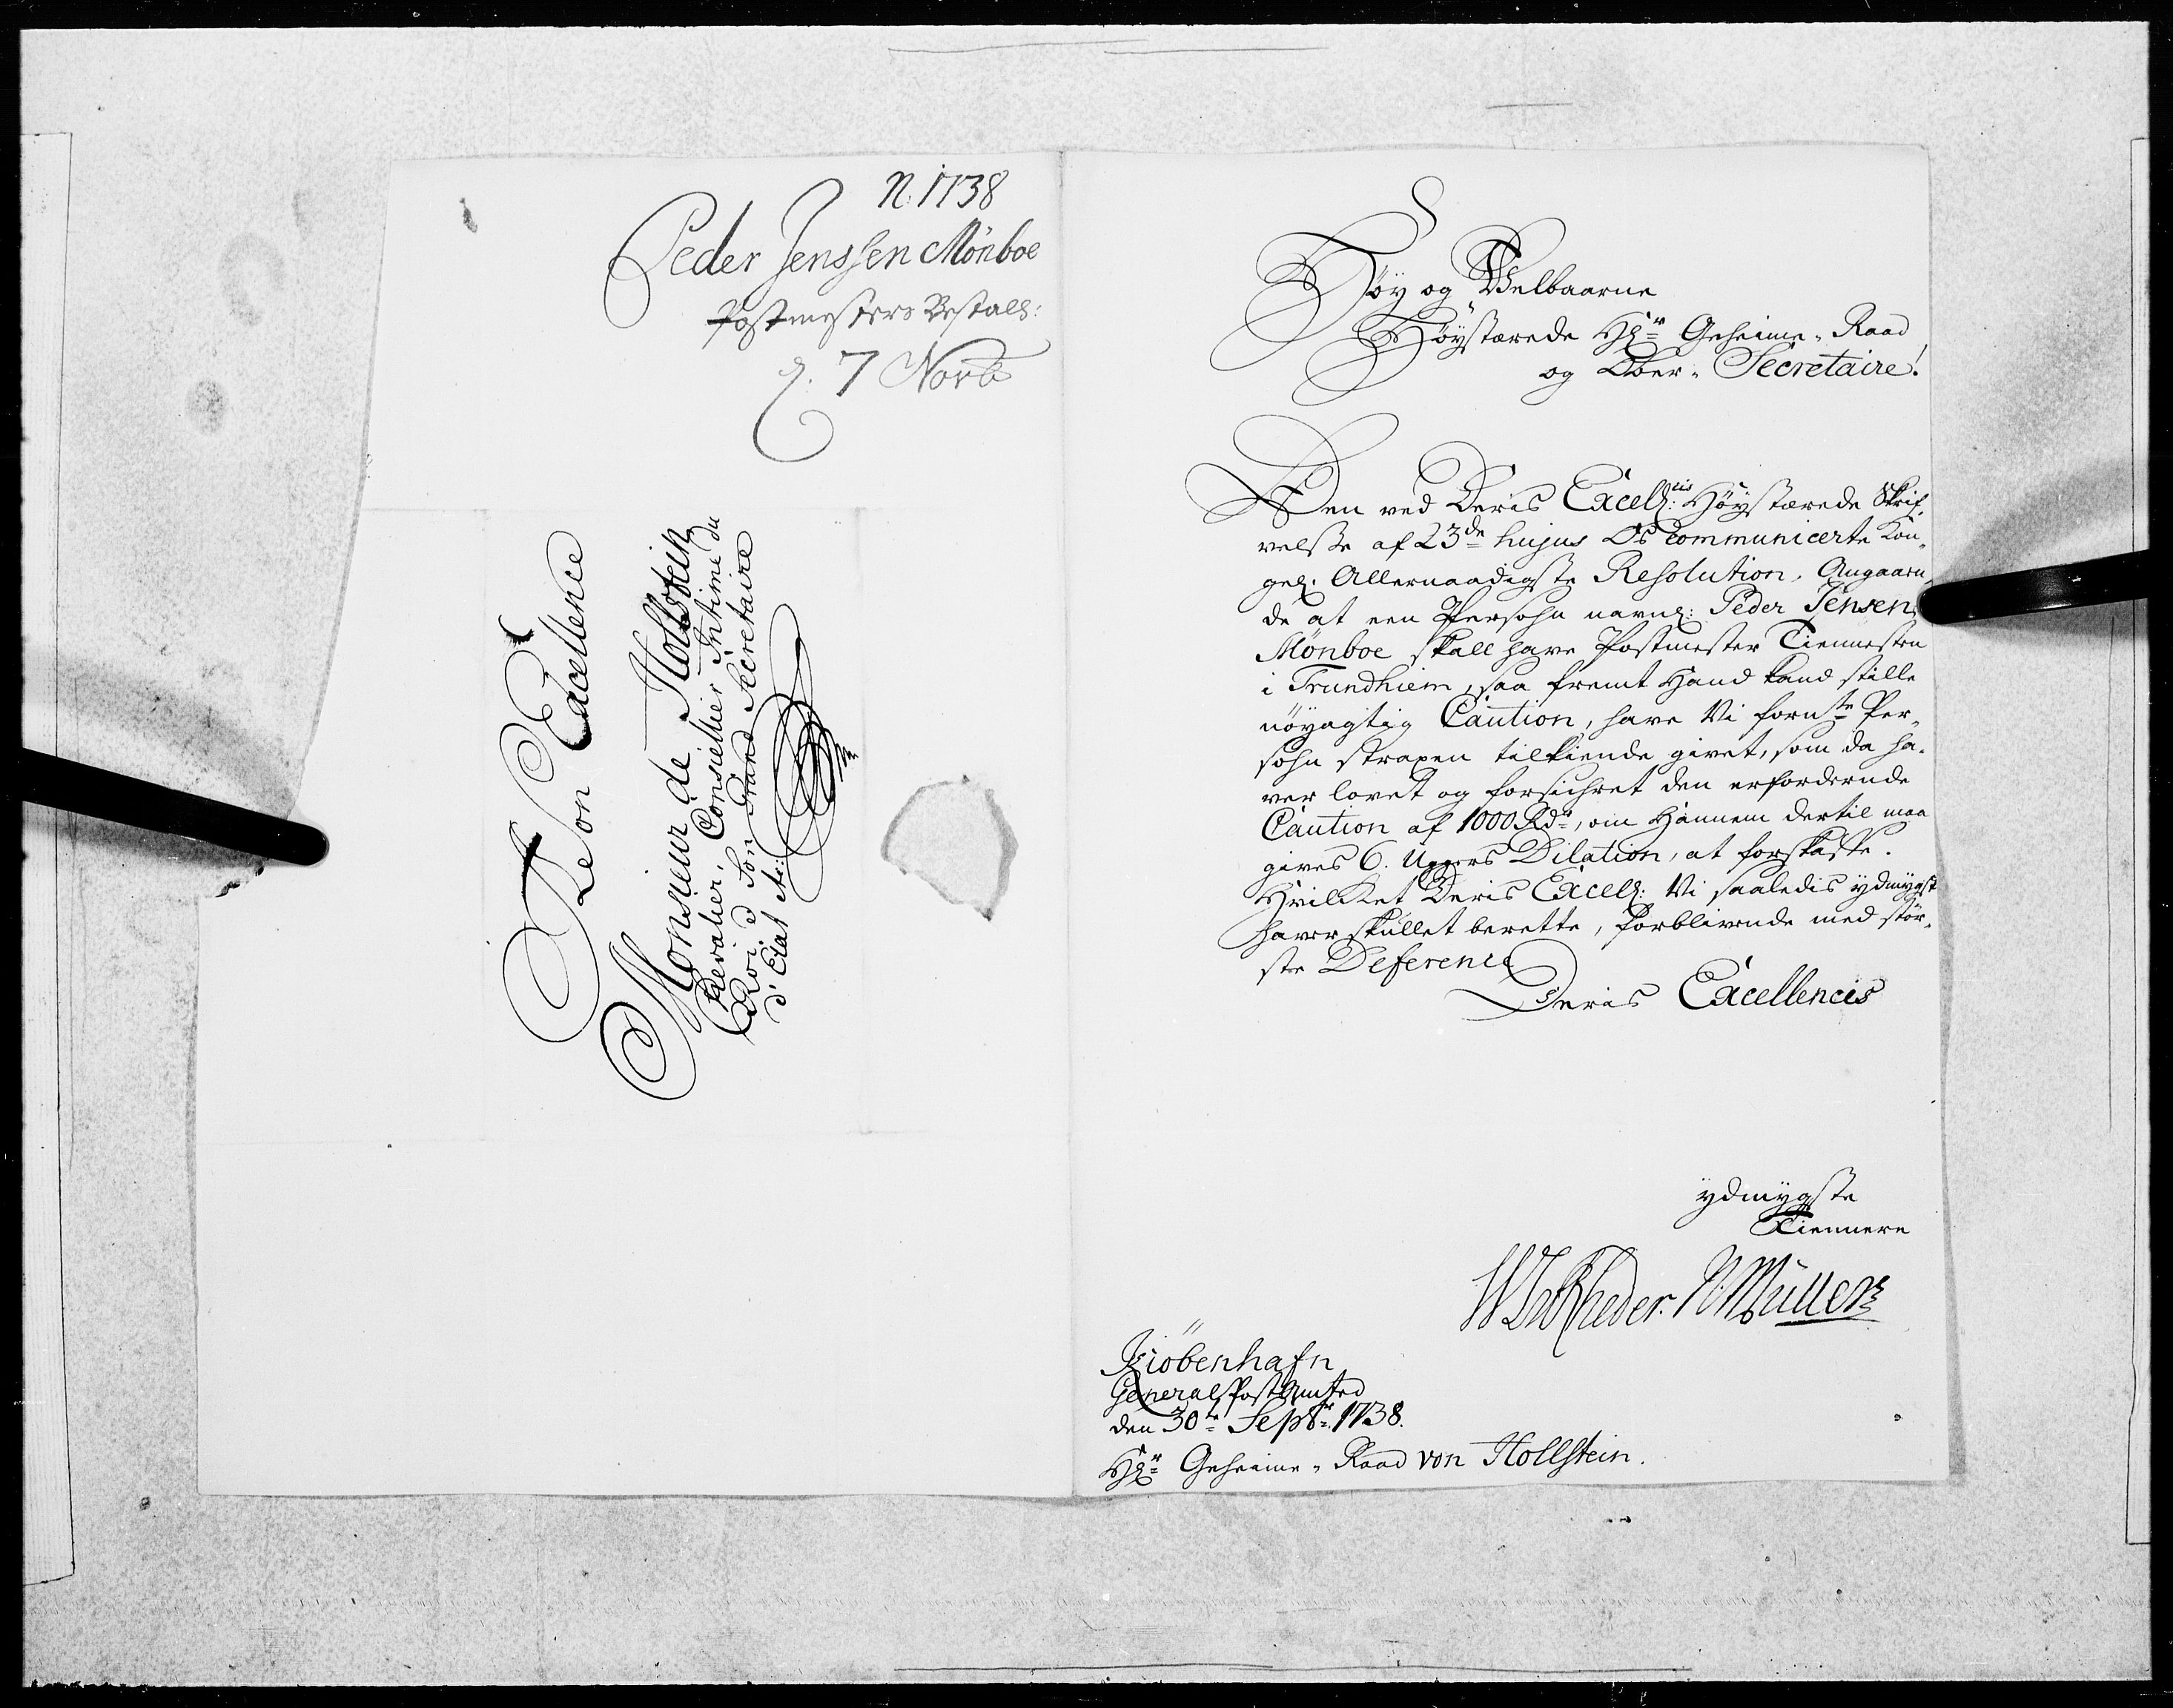 N. 1738
Peder Jenssen Mönboe
Postmesters Bestall:
d. 7 Novb
A Son Excellence
Monsieur de Hollstein
Chevalier, Conseillier Intime du
Roi, & Son Grand Secretaire
d'Etat &c:
Høy og Welbaarne
Høystærede Hr. Geheime-Raad
og Ober-Secretaire!
Den ved Deris Excell:cis Høystærede Skrif-
velsse af 23de hujus Os communicerte Kon-
gel: Allernaadigste Resolution, Angaaen-
de at een Persohn navnl: Peder Jensen
Mönboe skall have Postmester Tiennesten
i Trundhiem, saa fremt Hand kand stille
nøyagtig Caution, have Vi fornte Per-
sohn strapen tilkiende givet, som da ha-
ver lovet og forsichret den erfordrende
Caution af 1000 Rdr, om Hannem dertil maa
gives 6. Ugers Dilation, at forskaffe.
Hvilket Deris Excell: Vi saaledis ydmygst
haver skullet berette, forblivende med stör-
ste Deference
Deris Excellencis
ydmygste
Tiennere
Müller
Kiöbenhafn
General Post Amted
den 30te Septr. 1738.
Hr. Geheime-Raad von Hollstein.